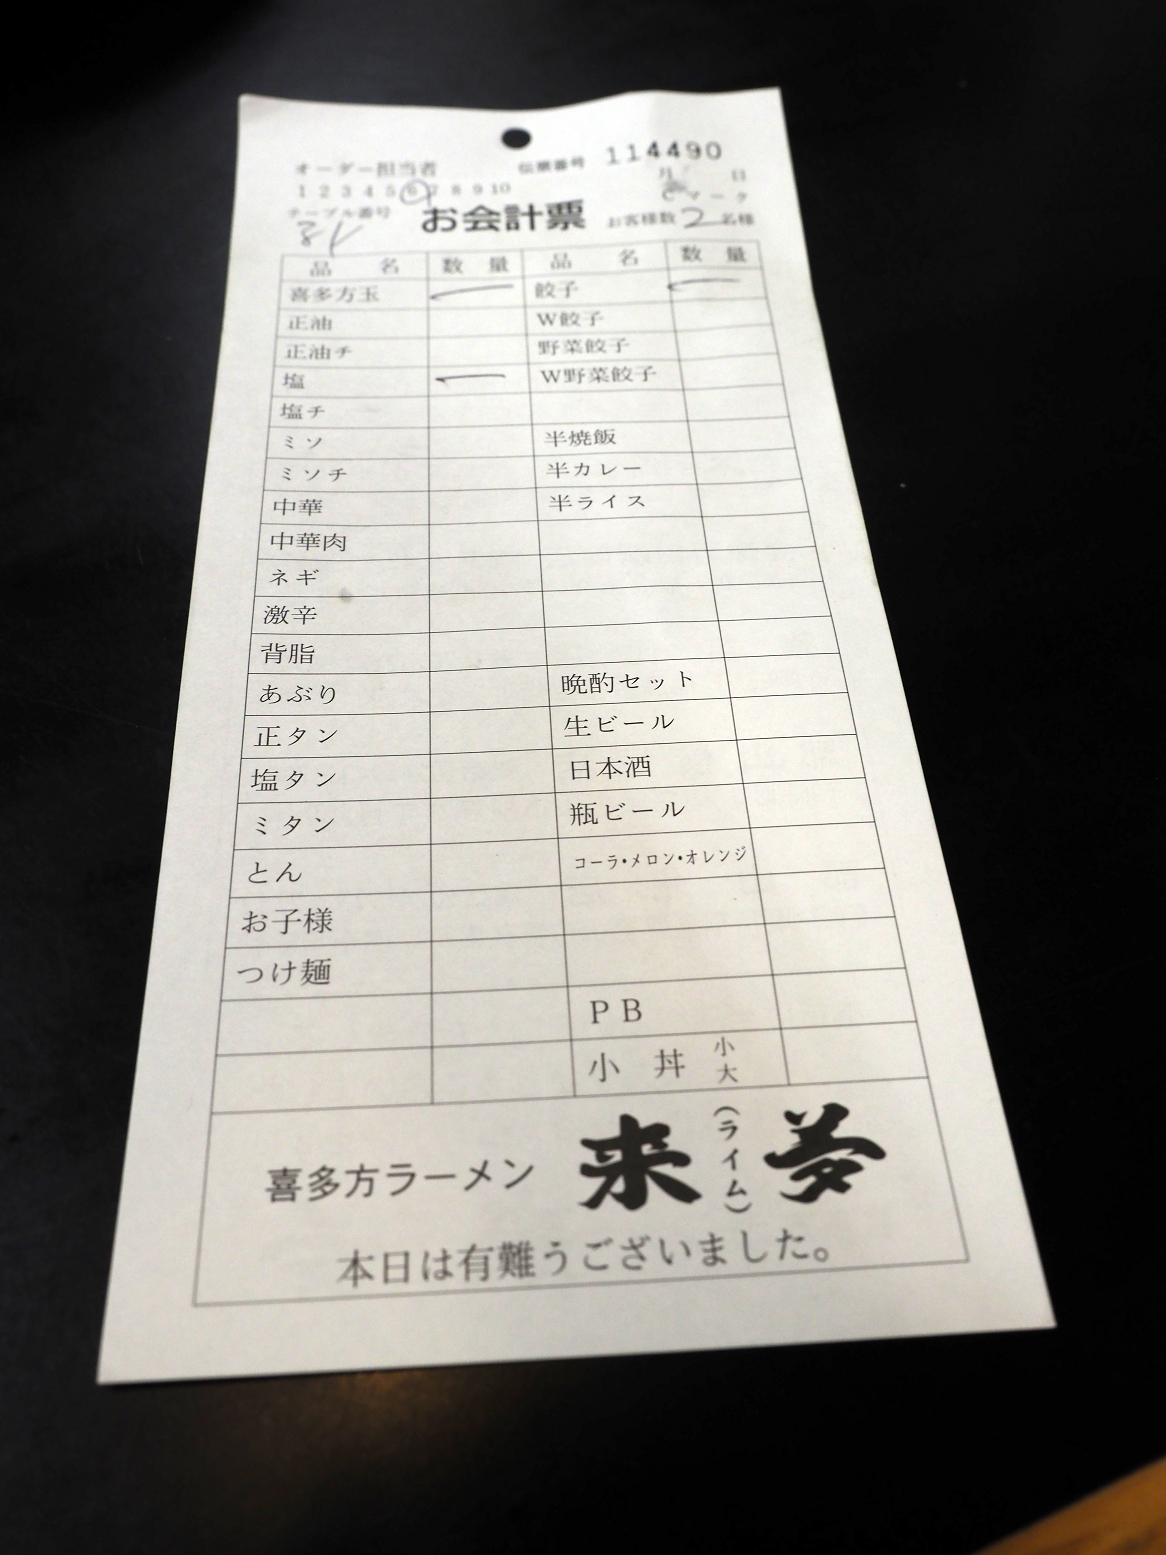 オーダー担当者 伝票番号 114490
1 2 3 4 5 6 7 8 9 10 月 日
Cマーク
テーブル番号 お会計票 お客様数 2 名様
品 名 数 量 品 名 数 量
喜多方玉 一 餃子 一
正油 W餃子
正油チ 野菜餃子
塩 一 W野菜餃子
塩チ
ミソ 半焼飯
ミソチ 半カレー
中華 半ライス
中華肉
ネギ
激辛
背脂
あぶり 晩酌セット
正タン 生ビール
塩タン 日本酒
ミタン 瓶ビール
とん コーラ・メロン・オレンジ
お子様
つけ麺
PB
小 丼 小 大
喜多方ラーメン 来夢 (ライム)
本日は有難うございました。